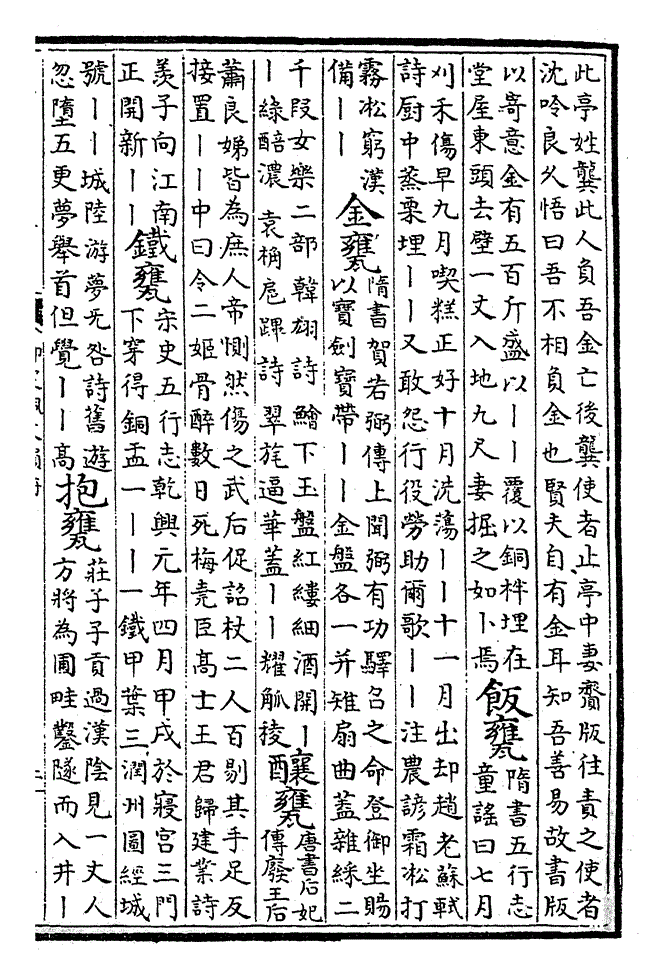 此亭姓龔此人負吾金亡後龔使者止亭中妻齎版往責之使者
沈吟良久悟曰吾不相負金也賢夫自有金耳知吾善易故書版
以寄意金有五百斤盛以丨丨覆以銅柈埋在
堂屋東頭去壁一丈入地九尺妻掘之如卜焉
飯甕
隋書五行志
童謠曰七月
刈禾傷早九月喫糕正好十月洗蕩丨丨十一月出却趙老蘇軾
詩厨中蒸粟埋丨丨又敢怨行役勞助爾歌丨丨注農諺霜凇打
霧凇窮漢
備丨丨
金甕
隋書賀若弼傳上聞弼有功驛召之命登御坐賜
以寶劍寶帶丨丨金盤各一并雉扇曲蓋雜綵二
千段女樂二部韓翃詩鱠下玉盤紅縷細酒開丨
丨綠醅濃 袁桷扈蹕詩翠旄逼華蓋丨丨耀觚稜
釀甕
唐書后妃
傳廢王后
蕭良娣皆為庶人帝惻然傷之武后促詔杖二人百剔其手足反
接置丨丨中曰令二姬骨醉數日死梅堯臣高士王君歸建業詩
羨子向江南
正開新丨丨
鐵甕
宋史五行志乾興元年四月甲戌於寢宮三門
下穿得銅盂一丨丨一鐵甲葉三潤州圖經城
號丨丨城陸游夢旡咎詩舊遊
忽墮五更夢舉首但覺丨丨高
抱甕
莊子子貢過漢陰見一丈人
方將為圃畦鑿隧而入井丨